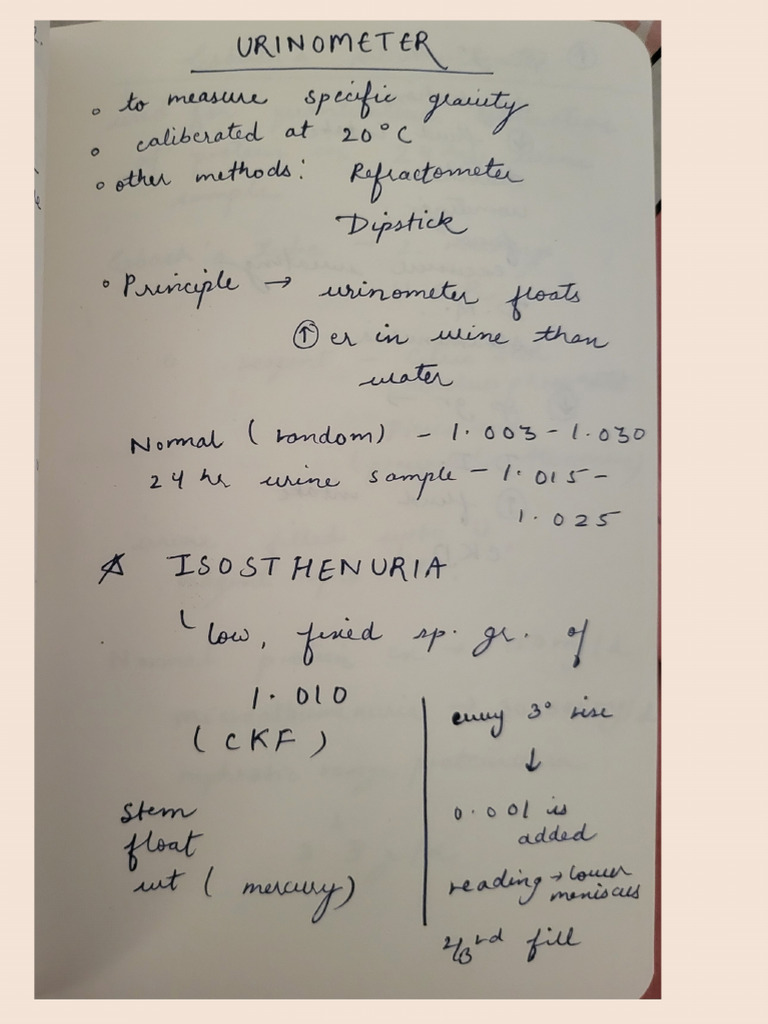 URINOMETER
◦ to measure specific graivty
◦ caliberated at 20°C
◦ other methods: Refractometer
Dipstick
◦ Principle → urinometer floats
↑ er in urine than
water
Normal (random) - 1.003 - 1.030
24 hr urine sample - 1.015 -
1.025
ISOSTHENURIA
low, fixed sp. gr. of
1.010
(CKF)
Stem
float
wt (mercury)
every 3° rise
↓
0.001 is
added
reading → lower
meniscus
2/3rd fill